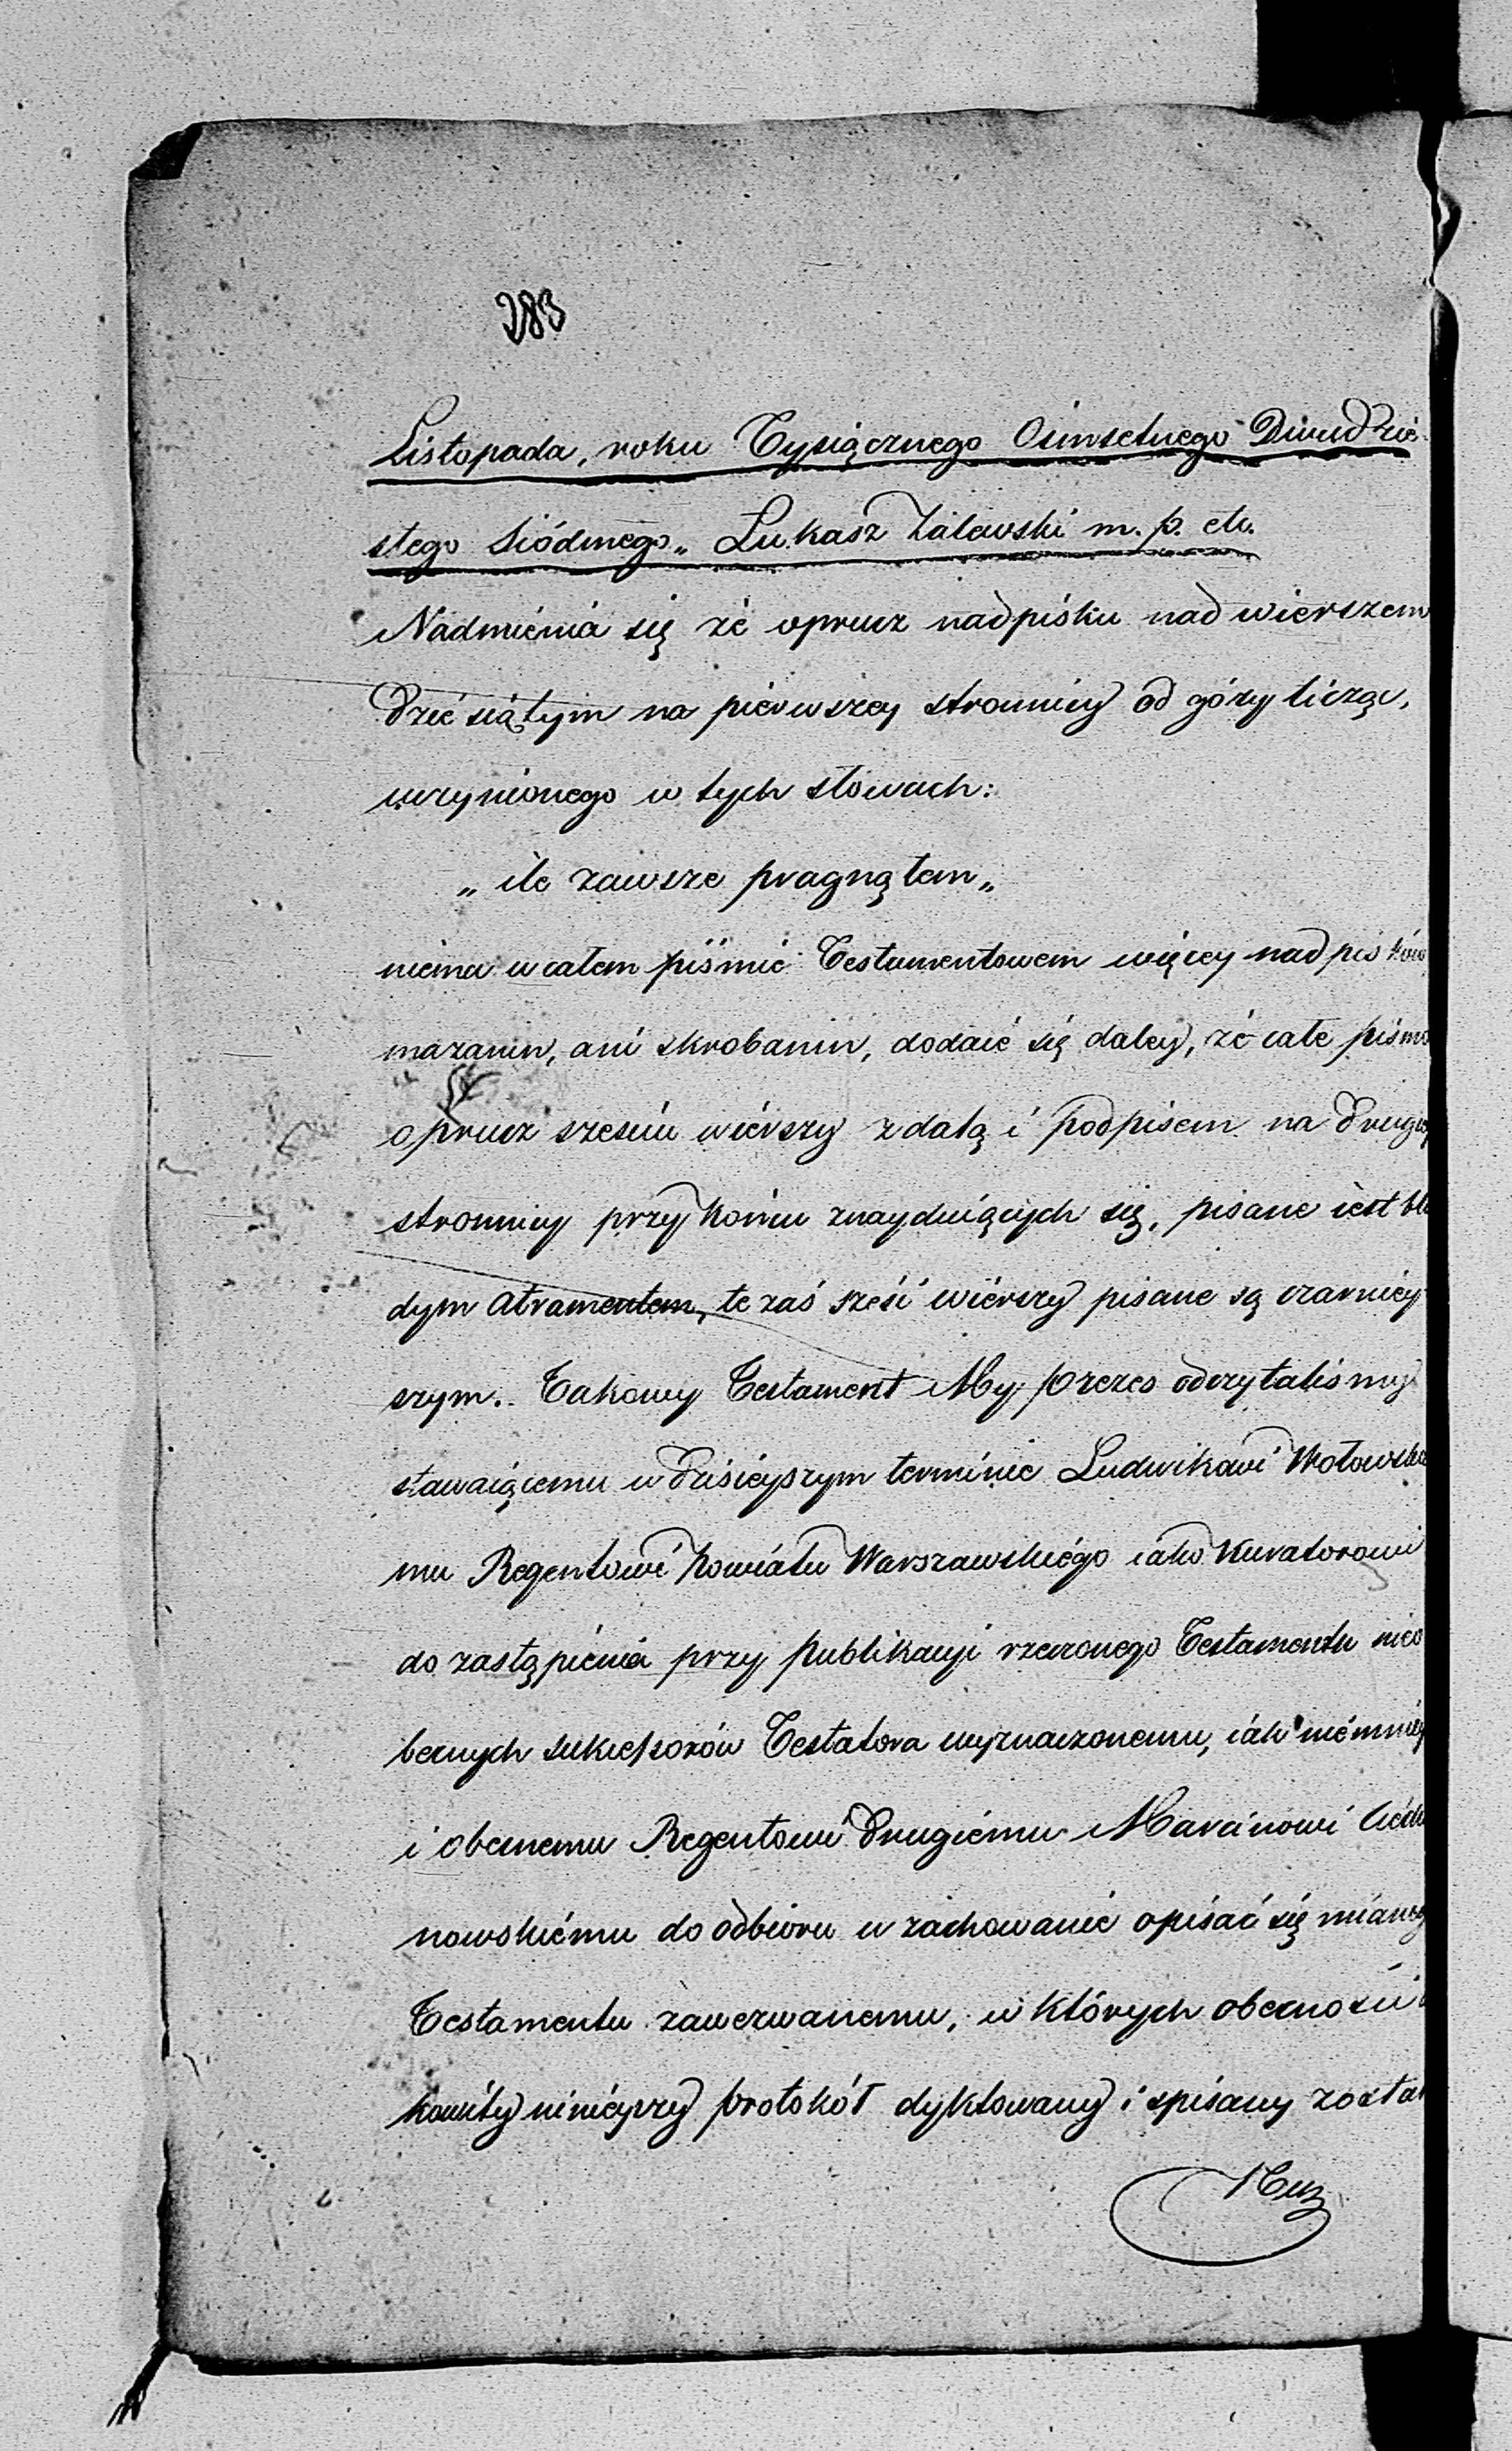 283
Listopada, roku Tysiącznego Osimsetnego Dwudzie-
stego Siódmego„ Łukasz Zalewski m. p. etc.
Nadmienia się że oprucz nadpisku nad wierszem
dziesiątym na pierwszey stronnicy od góry licząc,
uczynionego w tych słowach:
„ ile zawsze pragnąłem „
niema w całem piśmie Testamentowem więcey nadpisków
mazanin, ani skrobanin, dodaie się daley, że całe pismo
oprucz sześciu wierszy z datą i podpisem na drugiey
stronnicy przy końcu znayduiących się, pisane iest bla
dym atramentem, te zaś sześć wierszy pisane są czarniey
szym. Takowy Testament My Prezes odczytaliśmy
stawaiącemu w dzisieyszym terminie Ludwikowi Wołowskie
mu Regentowi Powiatu Warszawskiego iako Kuratorowi
do zastąpienia przy publikacyi rzeczonego Testamentu nieo
becnych sukcessorów Testatora wyznaczonemu, iak niemniey
i obecnemu Regentowi drugiemu Marcinowi
nowskiemu do odbioru w zachowanie opisać się
Testamentu zawezwanemu, w których obecności
ninieyszy protokół dyktowany i spisany został